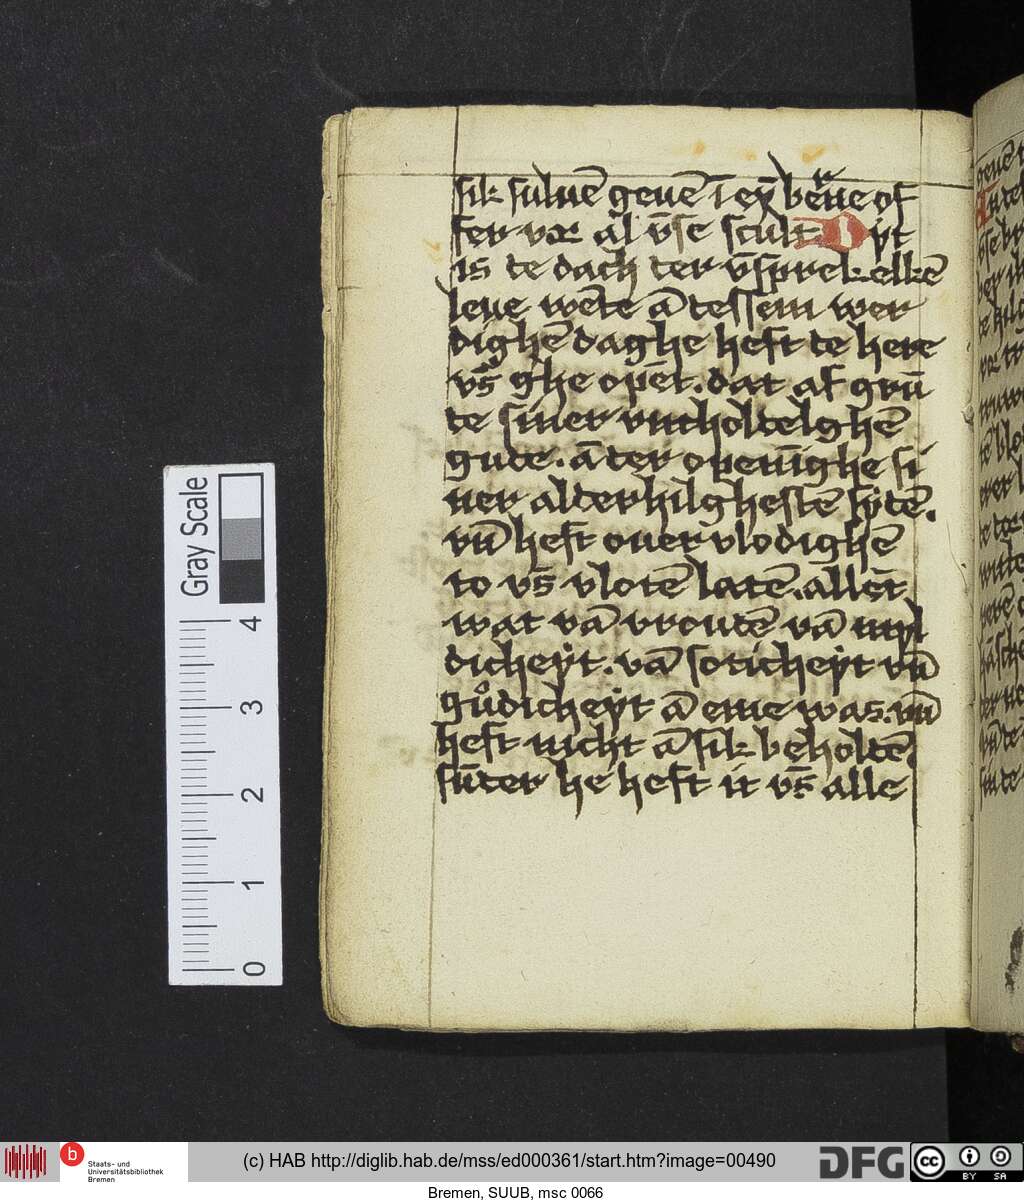 sik suluē geuē ī eȳ bern̄e of
fer vor al vn̄se scult Dyt
is te dach ter vn̄sprekelkē
leue wēte ā tessem wer
dighē daghe heft te here
vn̄s gheopēt. dat af grū
te siner vntholtelghē
gute. ā ter openīghe si
ner alderhilghestē sytē.
vn̄ heft ouervlodighē
to vn̄s vlotē latē. allēt
wat vā vroutē vā myl
dicheyt. vā soticheyt vn̄
gůdicheyt ā eme was. vn̄
heft nicht ā sik beholtē.
sūter he heft it vn̄s alle
Gray Scale
4
3
2
1
0
b
Staats- und
Universitätsbibliothek
Bremen
(c) HAB http://diglib.hab.de/mss/ed000361/start.htm?image=00490
DFG
cc BY SA
Bremen, SUUB, msc 0066